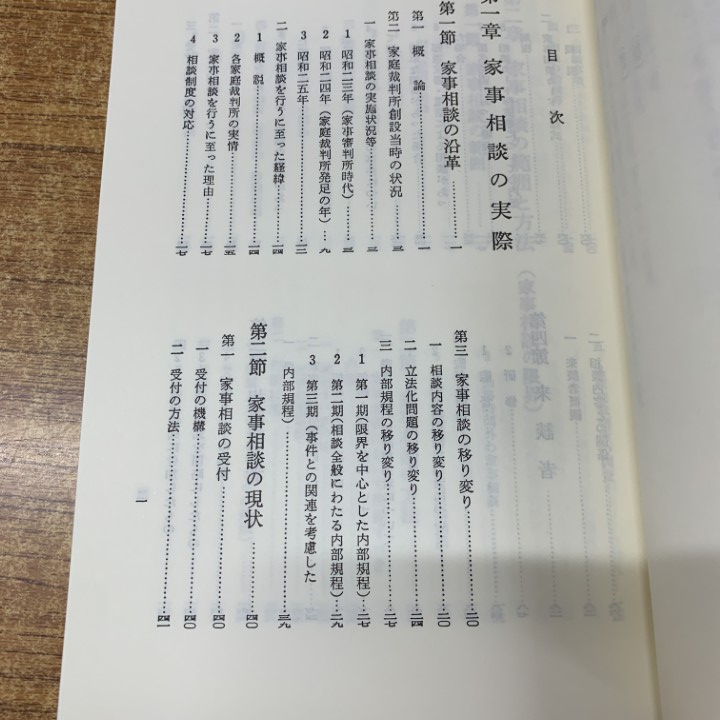 目次
第一章 家事相談の実際
第一節 家事相談の沿革……一
第一 概論……一
第二 家庭裁判所創設当時の状況……三
一 家事相談の実施状況等……三
1 昭和二三年（家事審判所時代）……三
2 昭和二四年（家庭裁判所発足の年）…九
3 昭和二五年……一三
二 家事相談を行うに至った経緯……一四
1 概説……一四
2 各家庭裁判所の実情……一五
3 家事相談を行うに至った理由……一七
4 相談制度の対応……一七
第三 家事相談の移り変り……二〇
一 相談内容の移り変り……二〇
二 立法化問題の移り変り……二四
三 内部規程の移り変り……二七
1 第一期（限界を中心とした内部規程）…二七
2 第二期（相談全般にわたる内部規程）…二九
3 第三期（事件との関連を考慮した
内部規程）……三九
第二節 家事相談の現状……四〇
第一 家事相談の受付……四〇
一 受付の機構……四〇
二 受付の方法……四一
一